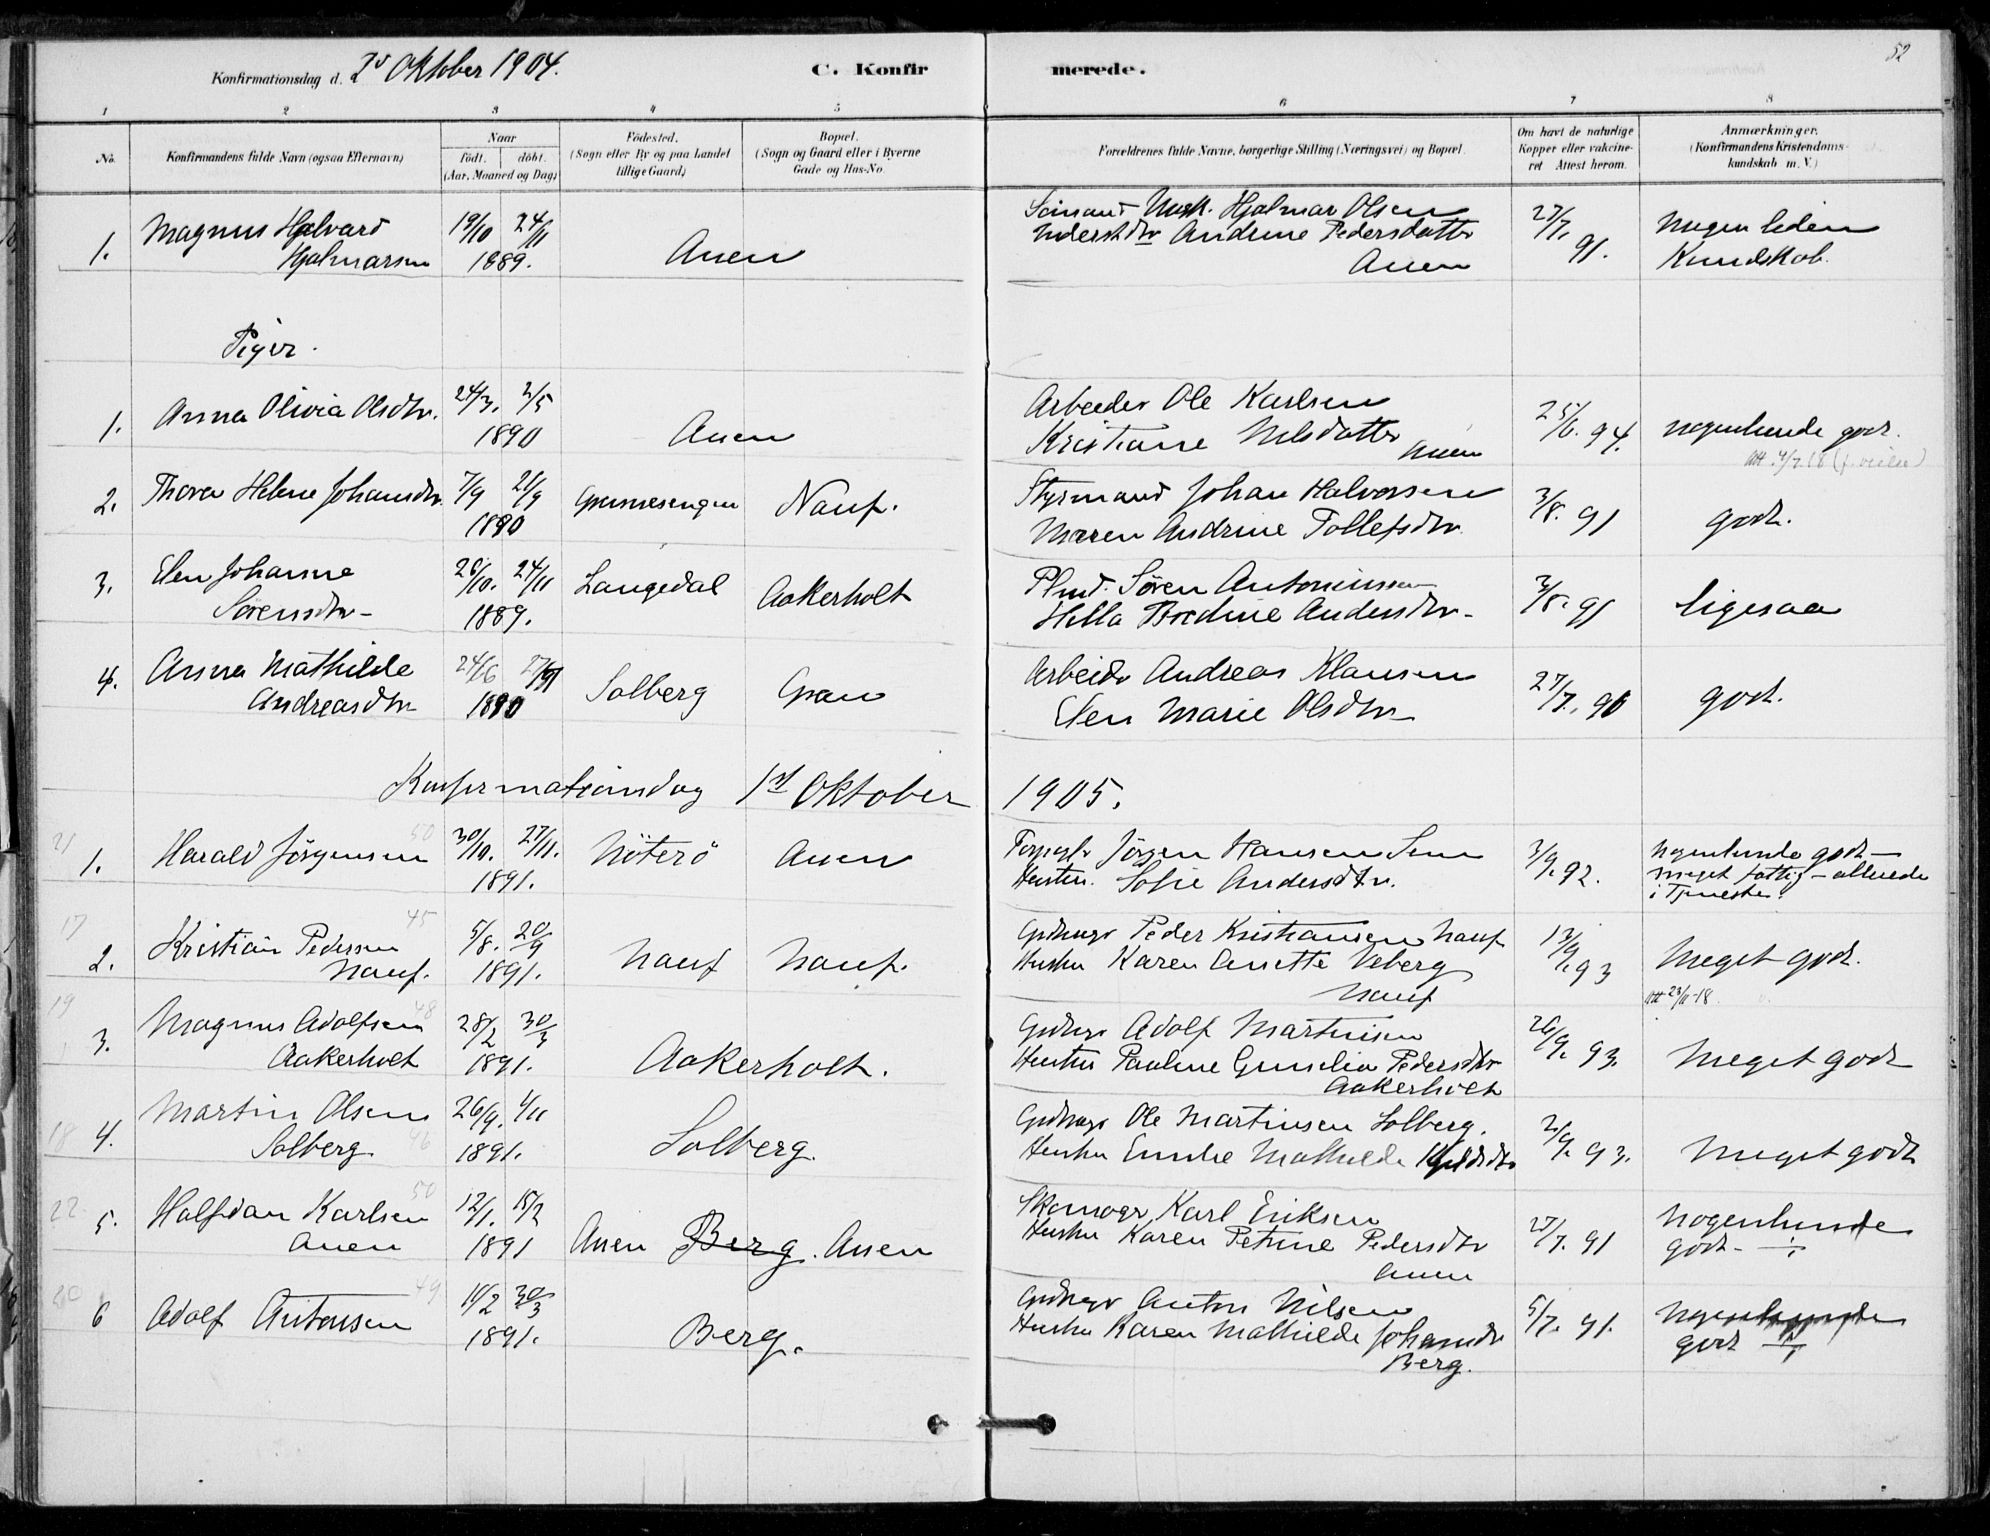 Konfirmationsdag d. 2d Oktober 1904.
C. Konfirmerede.
52
1 2 3 4 5 6 7 8
No.
Konfirmandens fulde Navn (ogsaa Efternavn)
Naar
födt. döbt.
(Aar, Maaned og Dag)
Födested.
(Sogn eller By og paa Landet
tillige Gaard)
Bopæl.
(Sogn og Gaard eller i Byerne
Gade og Hus-No
Forældrenes fulde Navne, borgerlige Stilling (Næringsvei) og Bopæl.
Om havt de naturlige
Kopper eller vakcine-
ret Attest herom.
Anmærkninger.
(Konfirmandens Kristendoms-
kundskab m. V.)
1. Magnus Halvard
Hjalmarsen
19/10 24/11
1889.
Auen
Hjalmar Olsen
Andrine Pedersdatter
Auen
27/7. 91.
nogen liden
Kundskab.
Piger.
1. Anna Olivia Olsdtr.
24/3. 2/5
1890
Auen
Arbeider Ole Karlsen
Kristiane Nilsdatter
Auen
25/6. 94.
nogenlunde godt.
2. Thora Helene Johansdtr.
7/9 21/9
1890
Nauf.
Styrmand Johan Halvorsen
Maren Andrine Tollefsdtr.
3/8. 91
godt.
3. Elen Johanne
Sörensdtr
26/10. 24/11
1889.
Langedal
Aakerholt
Sören Antoniussen
Hella Bredine Andersdtr
3/8. 91
ligesaa
4. Anna Mathilde
Andreasdtr
24/6 27/7
1890
Solberg
Gran
Arbeidr Andreas Klausen
Elen Marie Olsdtr
27/7. 90
godt.
Konfirmationsdag 1st Oktober 1905.
21 50
1. Harald Jörgensen
30/10. 27/11.
1891.
Nöterö
Auen
Jörgen Hansen Sem
Hustru. Sofie Andersdtr.
3/9. 92.
nogenlunde godt
meget fattig – allerede
i Tjeneste.
17 45
2. Kristian Pedersen
Nauf.
5/8. 20/9
1891.
Nauf
Nauf.
Grdbrugr Peder Kristiansen Nauf
Hustru Karen Anette Veberg
Nauf
13/9. 93
Meget godt.
Att 23/11-18
19 48
3. Magnus Adolfsen
Aakerholt
28/2 30/3
1891.
Aakerholt.
Grdbrugr Adolf Martinsen
Hustru Pauline Gunelia Pedersdtr
Aakerholt
26/9. 93.
Meget godt
18 46
4. Martin Olsen
Solberg
26/9. 4/11
1891.
Solberg.
Grdbrugr Ole Martinsen Solberg.
Hustru Emilie Mathilde Kjeldsdtr
2/9. 93.
Meget godt
22 50
5. Halfdan Karlsen
Auen
12/1. 15/2
1891
Auen Berg. Auen
Skomagr Karl Eriksen
Hustru Karen Petrine Pedersdtr
Auen
27/7. 91
nogenlunde
godt – ÷
20 49
6 Adolf Antonsen
11/2 30/3
1891.
Berg.
Grdbrugr Anton Nilsen
Hustru Karen Mathilde Johansdtr
Berg.
5/7. 91.
nogenlunde
godt ÷